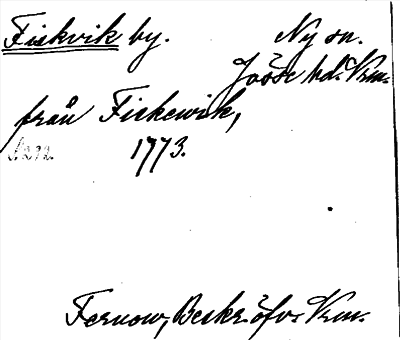 Fiskvik by. Ny sn.
Jösse hd. Vrm.
från Fiskewik,
s. 292. 1773.
Fernow, Beskr. öfv. Vrm.